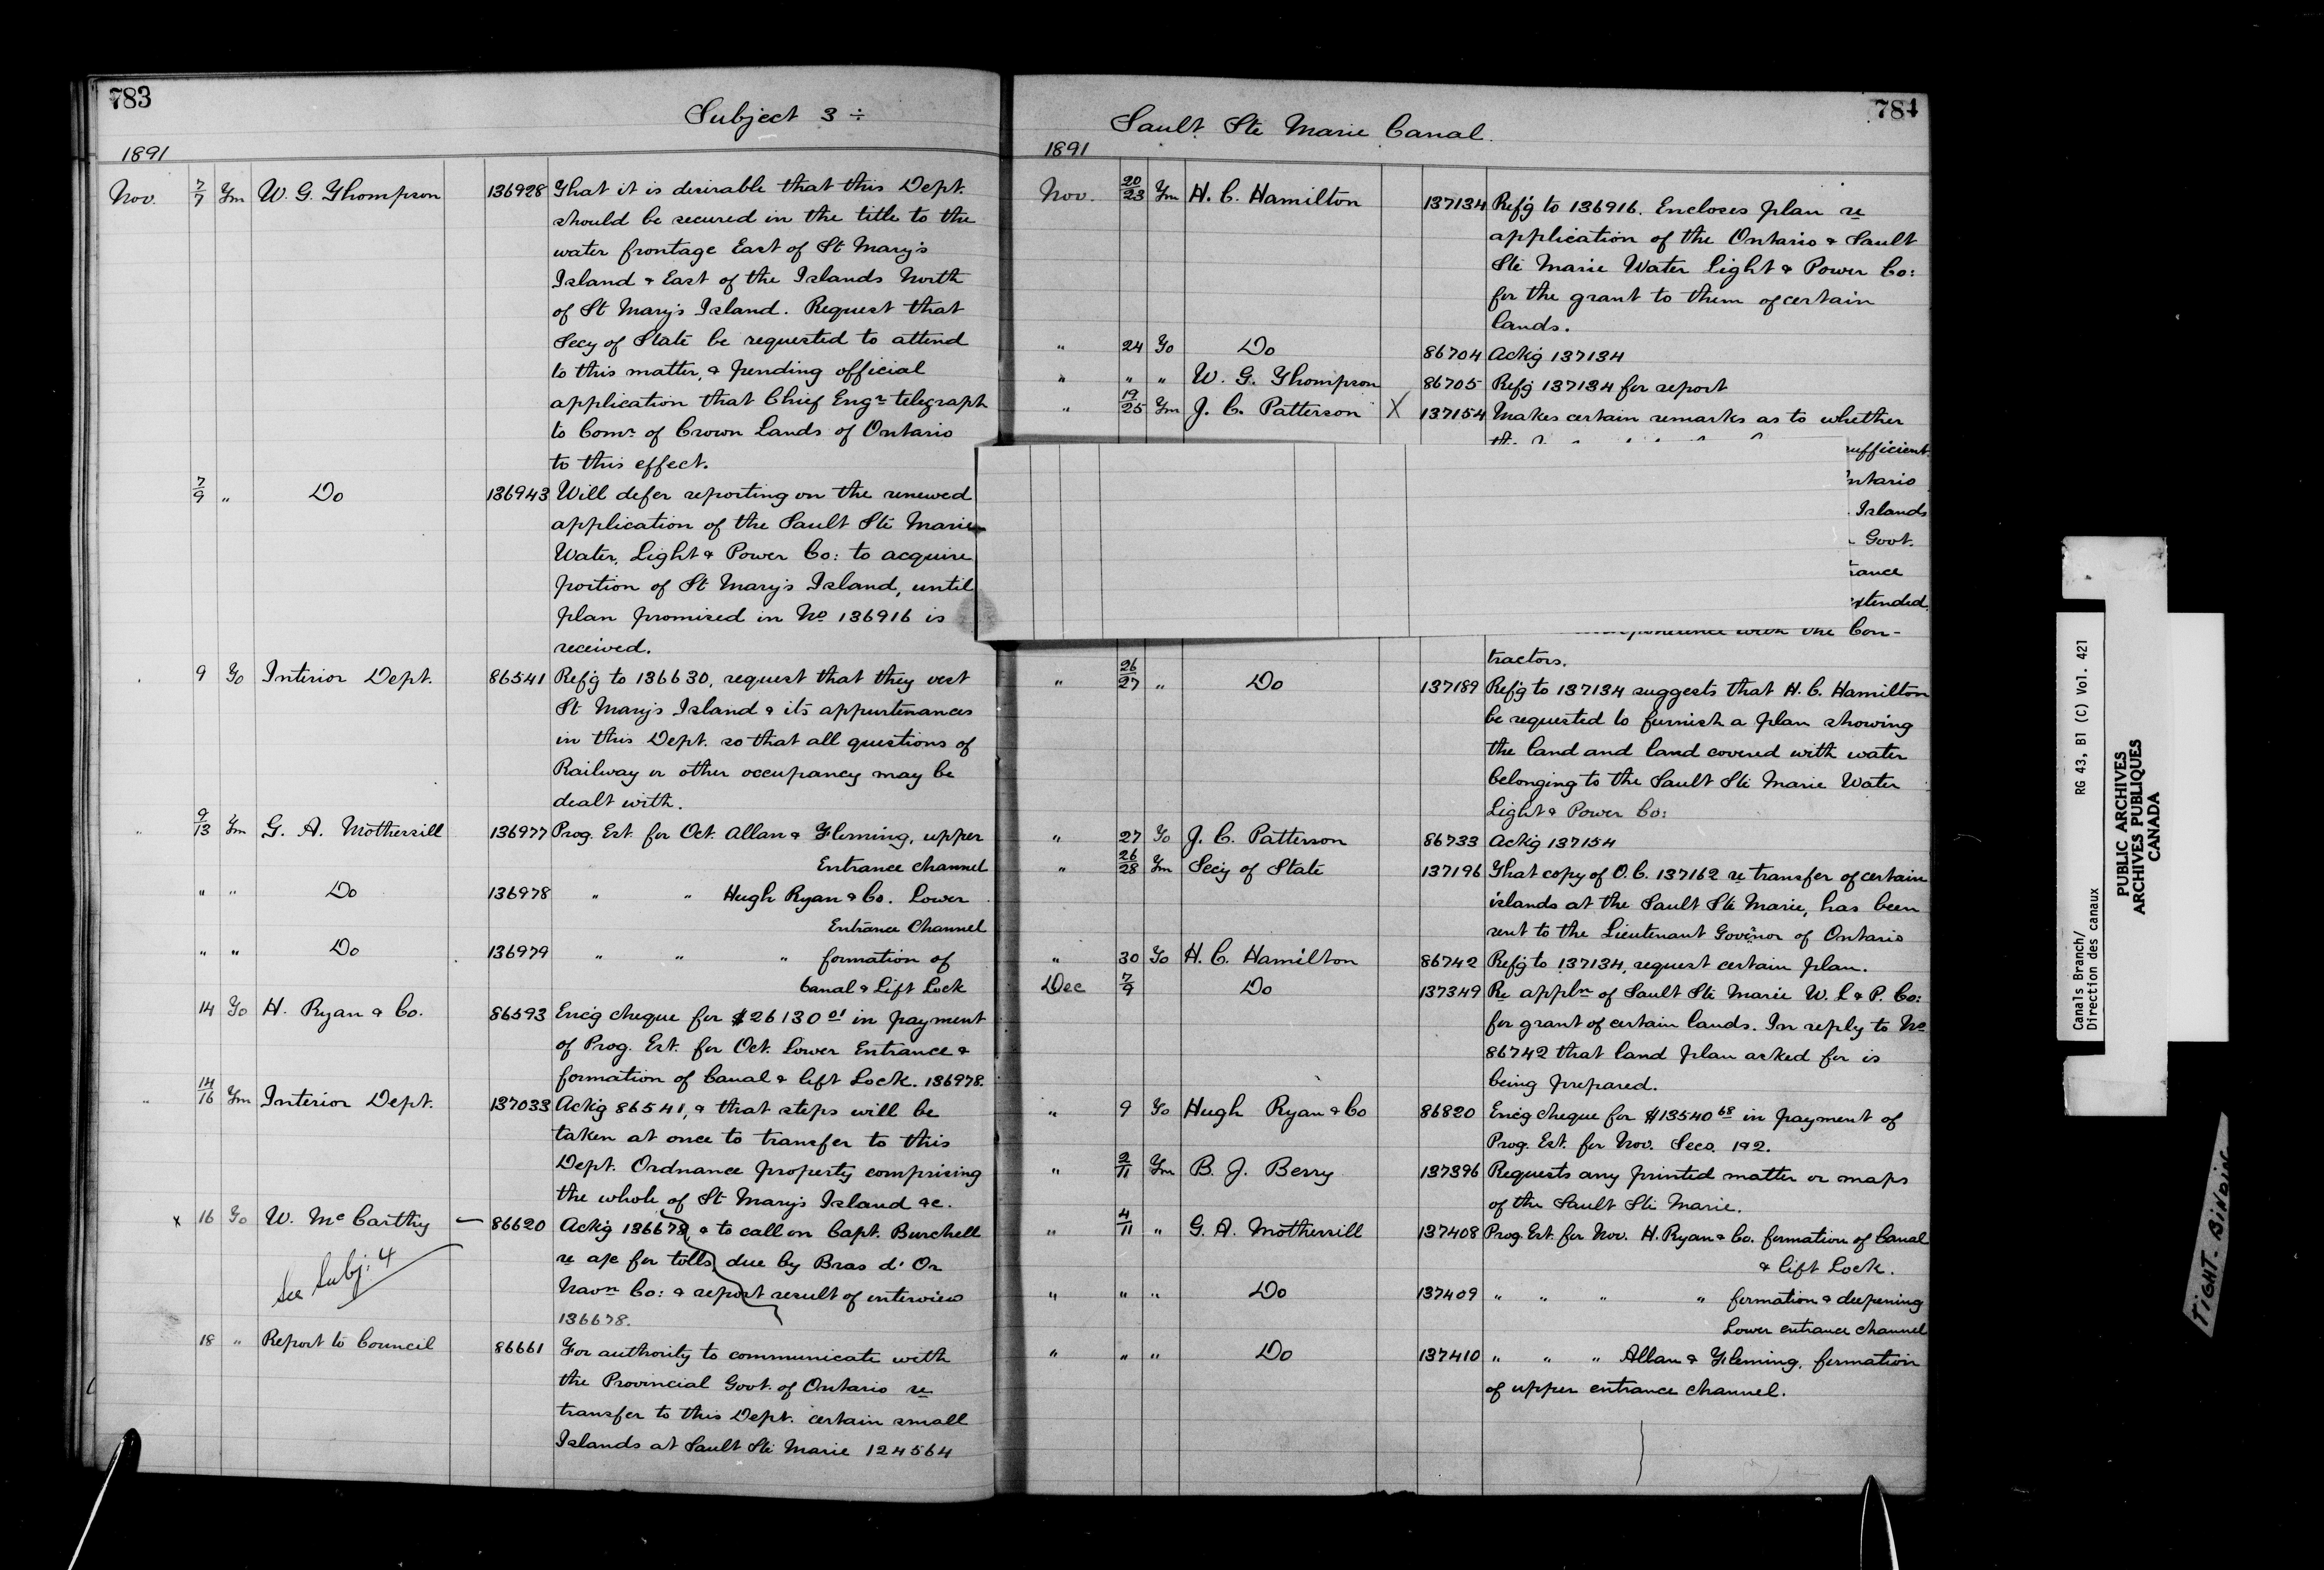 783
Subject 3 ÷
1891
Nov. 7/7 Fm W. G. Thompson 136928 That it is desirable that this Dept.
should be secured in the title to the
water frontage East of St Mary's
Island & East of the Islands North
of St Mary's Island. Request that
Secy of State be requested to attend
to this matter, & pending official
application that Chief Engr telegraph
to Comr of Crown Lands of Ontario
to this effect.
7/9 " Do 136943 Will defer reporting on the renewed
application of the Sault Ste Marie
Water, Light & Power Co: to acquire
portion of St Mary's Island, until
plan promised in No 136916 is
received.
9 To Interior Dept. 86541 Ref'g to 136630, request that they vest
St Mary's Island & its appurtenances
in this Dept. so that all questions of
Railway or other occupancy may be
dealt with.
" 9/13 Fm G. A. Mothersill 136977 Prog. Est. for Oct. Allan & Fleming, upper
Entrance channel
" " Do 136978 " " Hugh Ryan & Co. Lower
Entrance Channel
" " Do 136979 " " " formation of
Canal & Lift Lock
14 To H. Ryan & Co. 86593 Enc'g cheque for $26130 01 in payment
of Prog. Est. for Oct. Lower Entrance &
formation of Canal & lift Lock. 136978.
" 14/16 Fm Interior Dept. 137033 Ack'g 86541, & that steps will be
taken at once to transfer to this
Dept. Ordnance property comprising
the whole of St Mary's Island &c.
x 16 To W. McCarthy — 86620 Ack'g 136678, & to call on Capt. Burchell
re a/c for tolls due by Bras d'Or
Navn Co: & report result of interview
136678.
See Subj: 4
18 " Report to Council 86661 For authority to communicate with
the Provincial Govt. of Ontario re
transfer to this Dept. certain small
Islands at Sault Ste Marie 124564
784
Sault Ste Marie Canal.
1891
Nov. 20/23 Fm H. C. Hamilton 137134 Ref'g to 136916. Encloses plan re
application of the Ontario & Sault
Ste Marie Water Light & Power Co:
for the grant to them of certain
lands.
" 24 To Do 86704 Ack'g 137134
" " " W. G. Thompson 86705 Ref'g 137134 for report
" 19/25 Fm J. C. Patterson X 137154 Makes certain remarks as to whether
sufficient
Ontario
Islands
Govt.
extended.
with the Con-
tractors.
" 26/27 " Do 137189 Ref'g to 137134 suggests that H. C. Hamilton
be requested to furnish a plan showing
the land and land covered with water
belonging to the Sault Ste Marie Water
Light & Power Co:
" 27 To J. C. Patterson 86733 Ack'g 137154
" 26/28 Fm Secy of State 137196 That copy of O.C. 137162 re transfer of certain
islands at the Sault Ste Marie, has been
sent to the Lieutenant Governor of Ontario
" 30 To H. C. Hamilton 86742 Ref'g to 137134, request certain plan.
Dec 7/9 Do 137349 Re appln of Sault Ste Marie W. L & P. Co:
for grant of certain lands. In reply to No
86742 that land plan asked for is
being prepared.
" 9 To Hugh Ryan & Co 86820 Enc'g cheque for $13540 68 in payment of
Prog. Est. for Nov. Secs. 1 & 2.
" 2/11 Fm B. J. Berry 137396 Requests any printed matter or maps
of the Sault Ste Marie.
" 4/11 " G. A. Mothersill 137408 Prog. Est. for Nov. H. Ryan & Co. formation of Canal
& lift Lock.
" " " Do 137409 " " " " formation & deepening
Lower entrance channel
" " " Do 137410 " " " Allan & Fleming, formation
of upper entrance channel.
Canals Branch/
Direction des canaux
RG 43, B1 (C) Vol. 421
PUBLIC ARCHIVES
ARCHIVES PUBLIQUES
CANADA
TIGHT BINDING